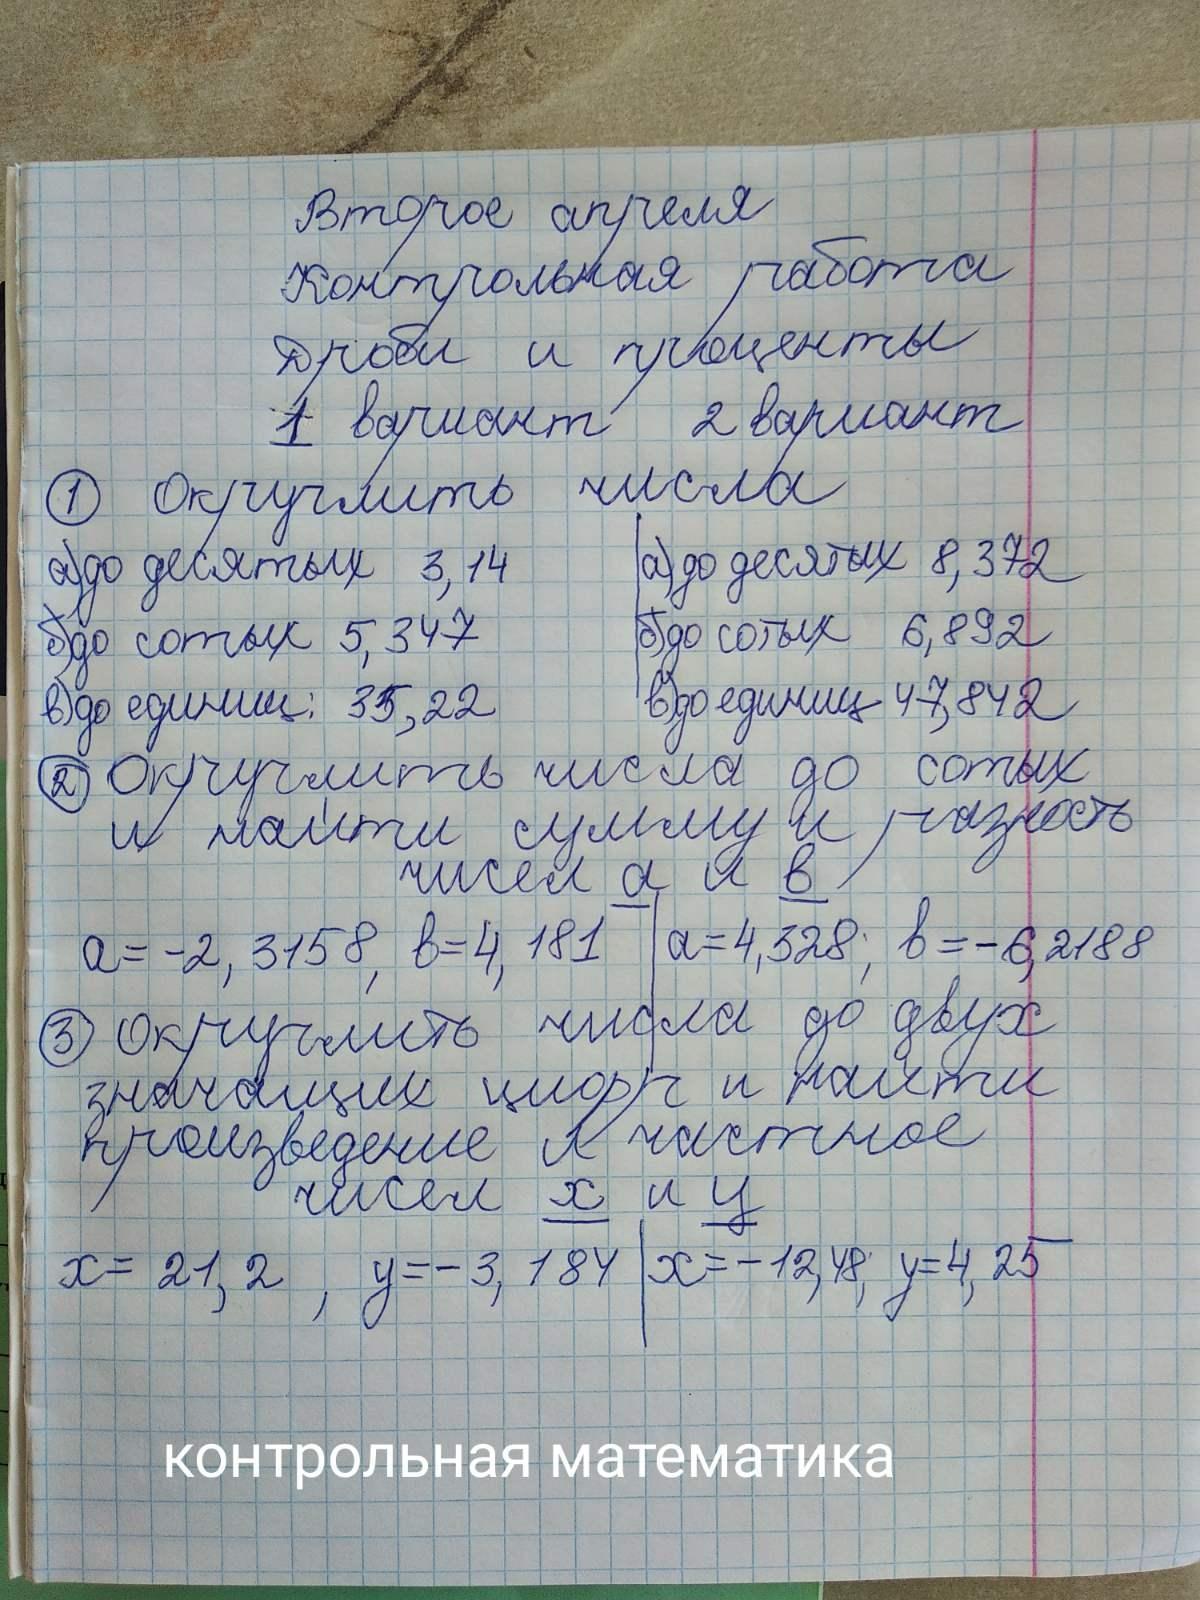 Второе апреля
Контрольная работа
Дроби и проценты
1 вариант 2 вариант
① Округлить числа
а) до десятых 3,14 а) до десятых 8,372
б) до сотых 5,347 б) до сотых 6,892
в) до единиц: 35,22 в) до единиц 47,842
② Округлить числа до сотых
и найти сумму и разность
чисел а и в
а = -2,3158, в = 4,181 а = 4,328; в = -6,2188
③ Округлить числа до двух
значащих цифр и найти
произведение и частное
чисел х и у
х = 21,2, у = -3,184 х = -12,48; у = 4,25
контрольная математика